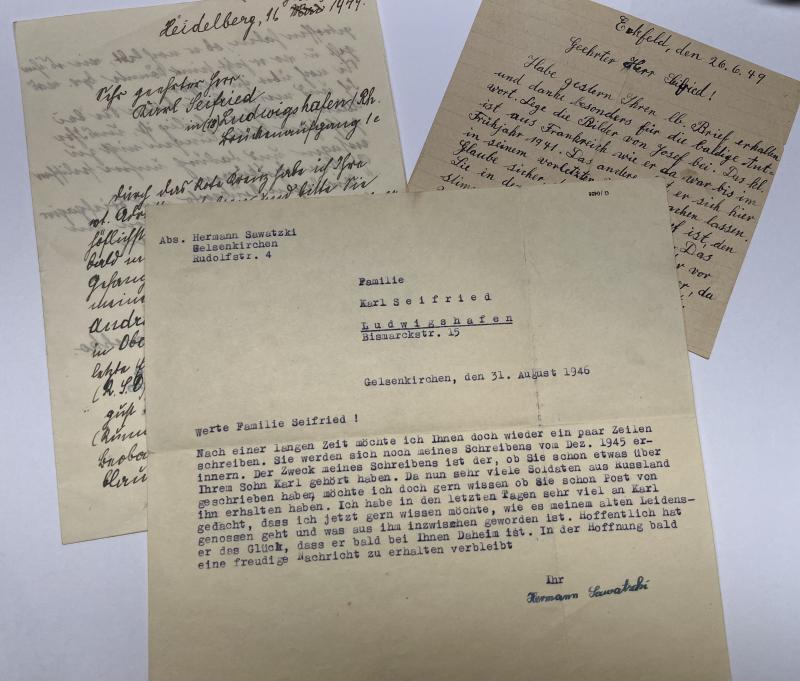 Heidelberg, 16
Sehr geehrter Herr
Karl Seifried
in Ludwigshafen/Rh.
Brückenaufgang 1c
Durch das Rote Kreuz habe ich Ihre
und bitte Sie
höflichst
bald
letzte
Eckfeld, den 26.6.49
Geehrter Herr Seifried!
Habe gestern Ihren lb. Brief erhalten
und danke besonders für die baldige Ant-
wort. Lege die Bilder von Josef bei. Das kl.
ist aus Frankreich wie er da war bis im
Frühjahr 1941. Das andere hat er sich hier
in seinem vorletzten
machen lassen.
Glaube sicher
ist, den
Sie in der
Das
vor
er, da
Abs. Hermann Sawatzki
Gelsenkirchen
Rudolfstr. 4
Familie
Karl Seifried
Ludwigshafen
Bismarckstr. 15
Gelsenkirchen, den 31. August 1946
Werte Familie Seifried !
Nach einer langen Zeit möchte ich Ihnen doch wieder ein paar Zeilen
schreiben. Sie werden sich noch meines Schreibens vom Dez. 1945 er-
innern. Der Zweck meines Schreibens ist der, ob Sie schon etwas über
Ihrem Sohn Karl gehört haben. Da nun sehr viele Soldaten aus Russland
geschrieben haben, möchte ich doch gern wissen ob Sie schon Post von
ihm erhalten haben. Ich habe in den letzten Tagen sehr viel an Karl
gedacht, dass ich jetzt gern wissen möchte, wie es meinem alten Leidens-
genossen geht und was aus ihm inzwischen geworden ist. Hoffentlich hat
er das Glück, dass er bald bei Ihnen Daheim ist. In der Hoffnung bald
eine freudige Nachricht zu erhalten verbleibt
Ihr
Hermann Sawatzki